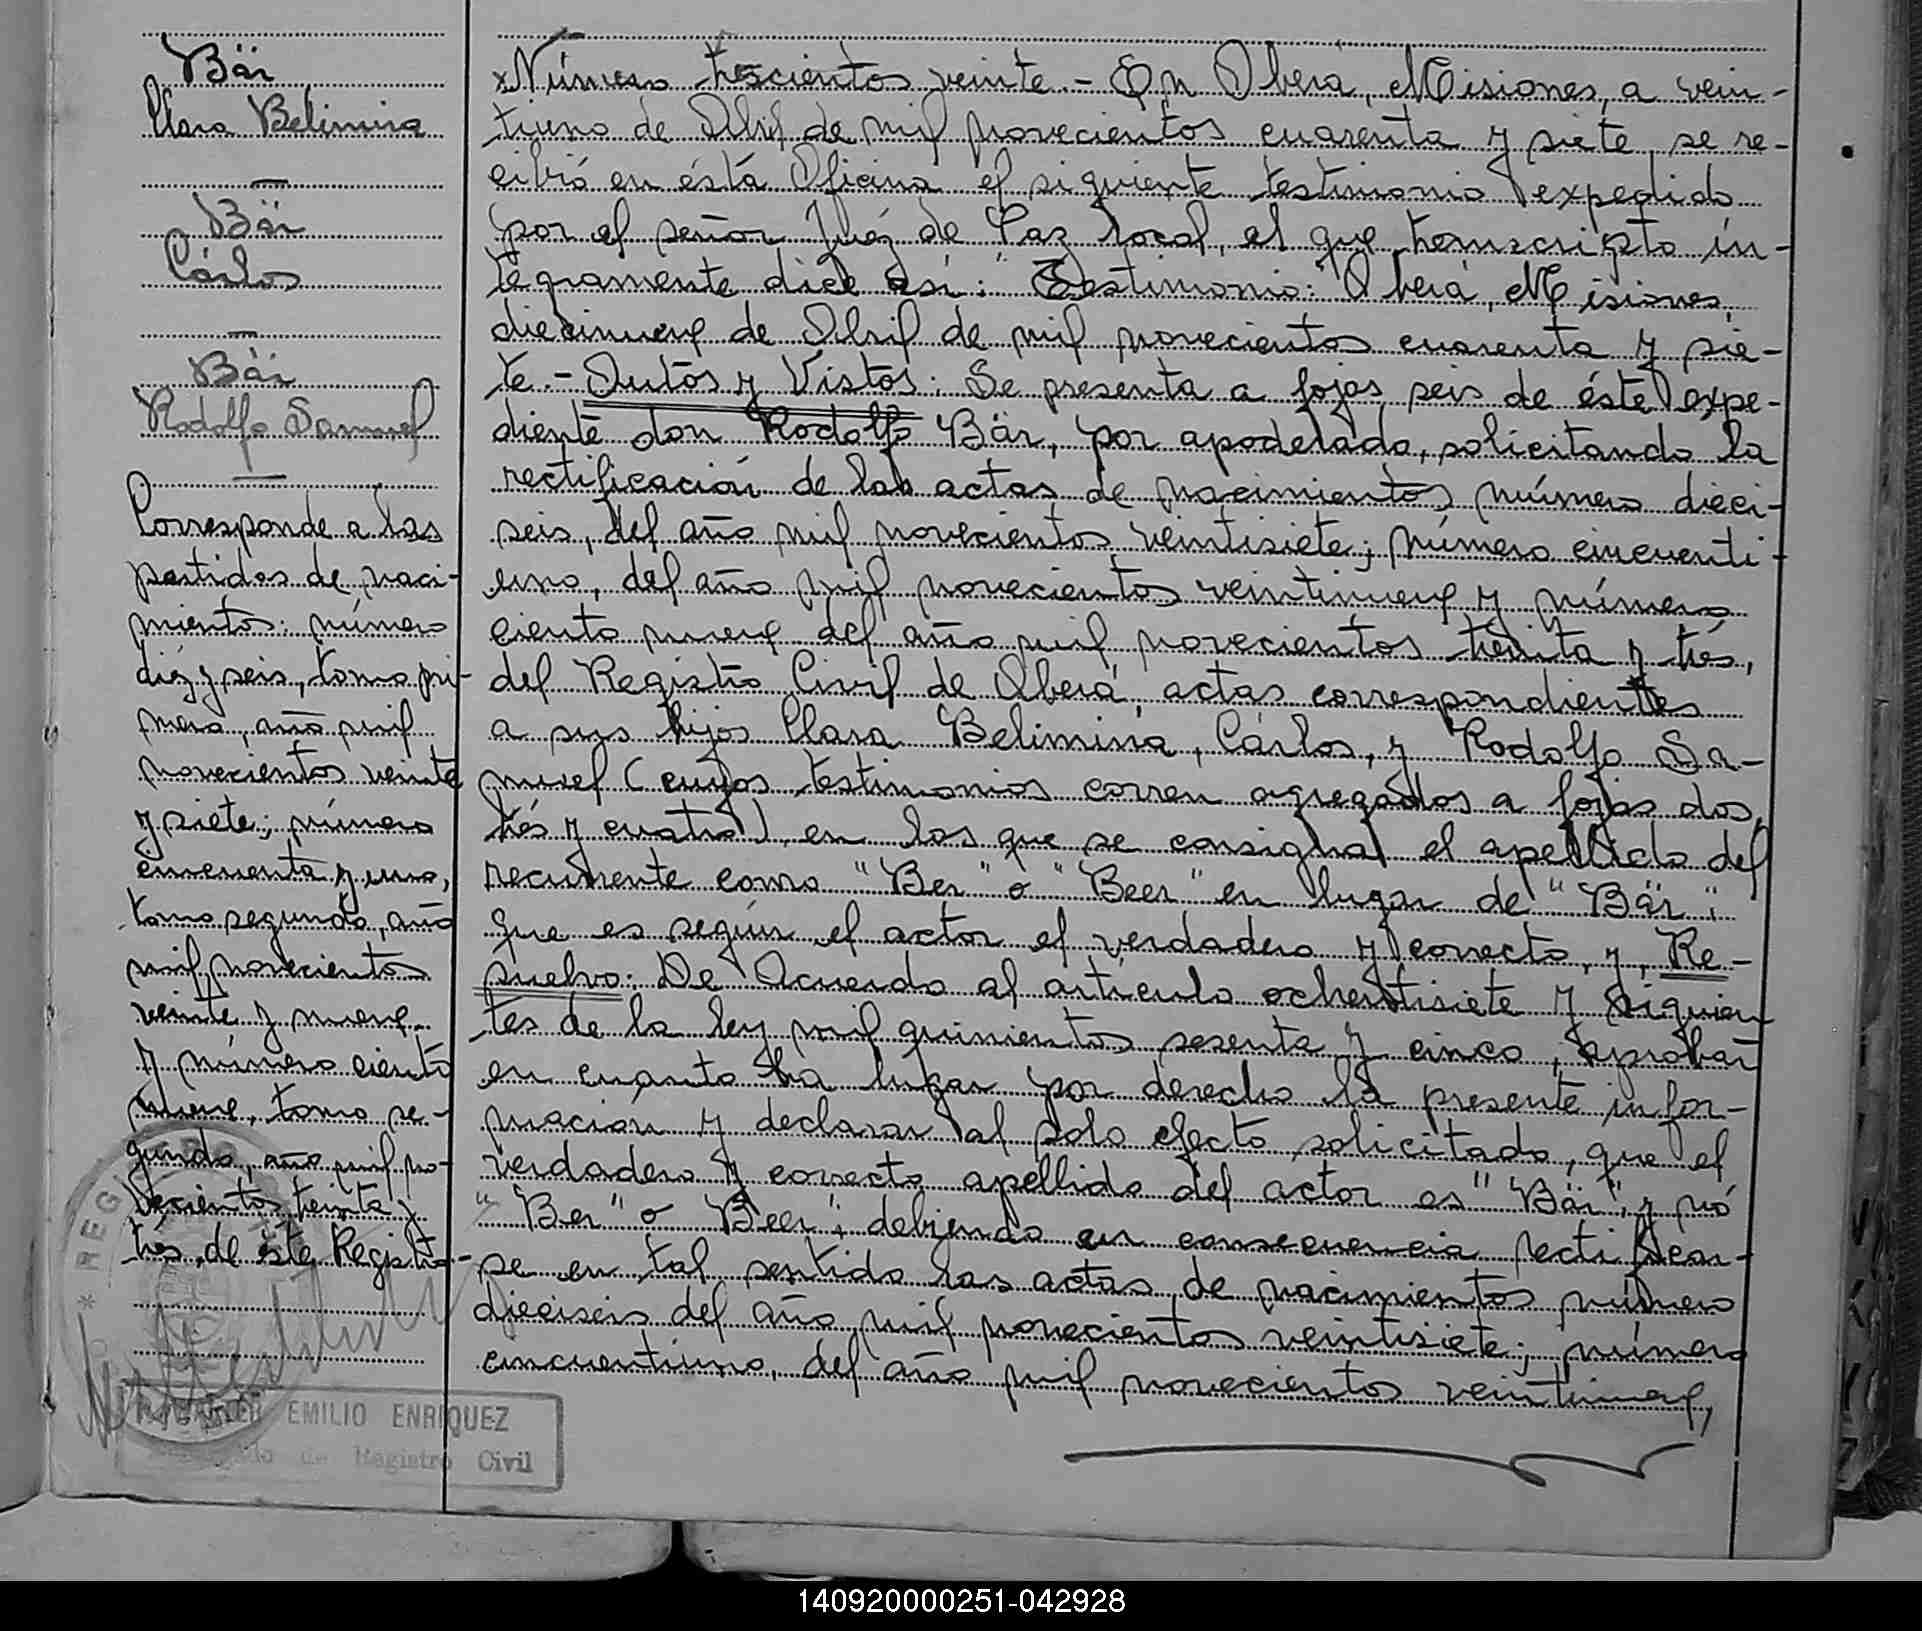 Bär
Clara Belimina
Bär
Cárlos
Bär
Rodolfo Samuel
Corresponde a las
partidas de naci-
mientos: número
diéz y seis, tomo pri-
mero, año mil
novecientos veinte
y siete; número
cincuenta y uno,
tomo segundo, año
mil novecientos
veinte y nueve
y número ciento
nueve, tomo se-
gundo, año mil no-
vecientos treinta y
trés, de éste Registro-
Número trescientos veinte.- En Oberá, Misiones, a vein-
tiuno de Abril de mil novecientos cuarenta y siete, se re-
cibió en ésta Oficina el siguiente testimonio expedido
por el señor Juéz de Paz local, el que transcripto ín-
tegramente dice así: "Testimonio: Oberá, Misiones,
diecinueve de Abril de mil novecientos cuarenta y sie-
te.- Autos y Vistos: Se presenta a fojas seis de éste expe-
diente don Rodolfo Bär, por apoderado, solicitando la
rectificación de las actas de nacimientos número dieci-
seis, del año mil novecientos veintisiete; número cincuenti-
uno, del año mil novecientos veintinueve y número
ciento nueve del año mil novecientos treinta y trés,
del Registro Civil de Oberá, actas correspondientes
a sus hijos Clara Belimina, Cárlos, y Rodolfo Sa-
muel (cuyos testimonios corren agregados a fojas dos,
trés y cuatro) en los que se consigna el apellido del
recurrente como "Ber" o "Beer" en lugar de "Bär";
que es según el actor el verdadero y correcto, y, Re-
suelvo: De Acuerdo al artículo ochentisiete y siguien-
tes de la ley mil quinientos sesenta y cinco, aprobar
en cuanto ha lugar por derecho la presente infor-
mación y declarar al solo efecto solicitado, que el
verdadero y correcto apellido del actor es "Bär", y nó
"Ber" o "Beer"; debiendo en consecuencia rectificar-
se en tal sentido las actas de nacimientos número
dieciseis del año mil novecientos veintisiete; número
cincuentiuno, del año mil novecientos veintinueve,
REG
EMILIO ENRIQUEZ
de Registro Civil
140920000251-042928